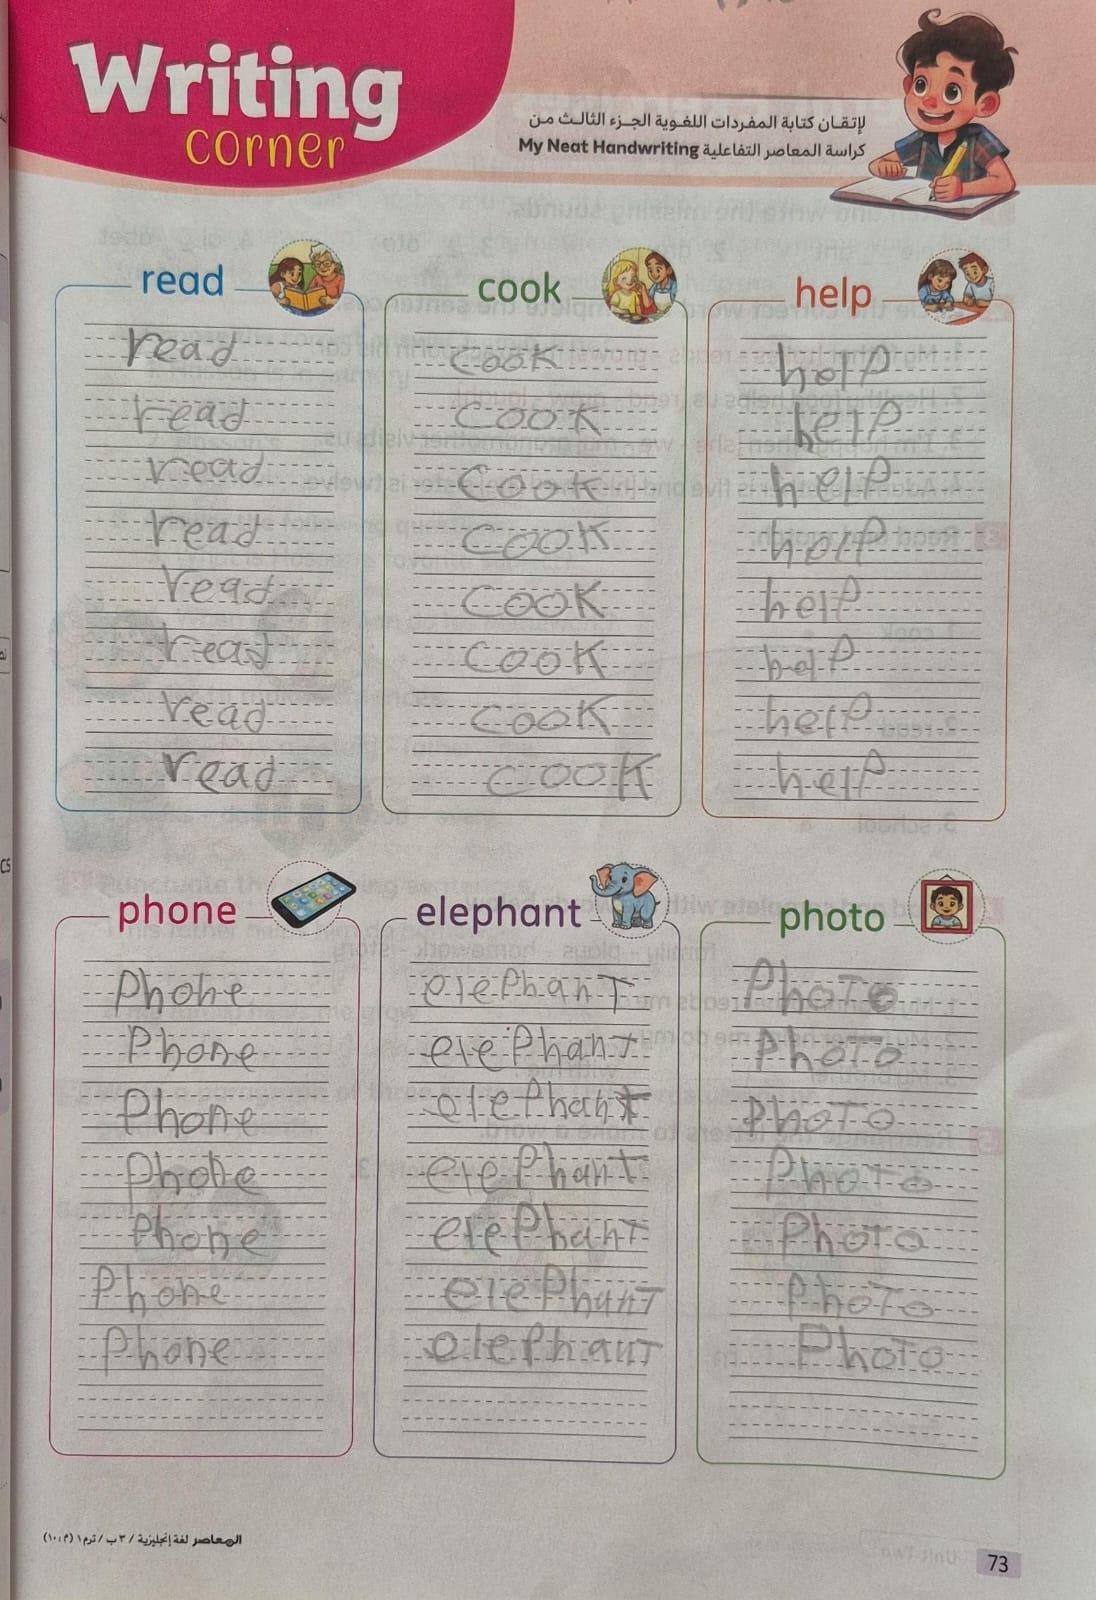 Writing
corner
لإتقـان كتابة المفردات اللغـوية الجـزء الثالـث مـن
كراسة المعاصر التفاعلية My Neat Handwriting
read
cook
help
read
read
read
read
read
read
read
read
cook
cook
cook
cook
cook
cook
cook
cook
help
help
help
help
help
help
help
help
phone
elephant
photo
Phone
Phone
Phone
Phone
Phone
Phone
Phone
elePhanT
elePhanT
elePhant
elePhanT
elePhanT
elePhanT
elePhanT
PhoTo
PhoTo
PhoTo
PhoTo
PhoTo
PhoTo
PhoTo
المعاصر لغة إنجليزية / ٣ ب / ترم ١ (م : ١٠)
73